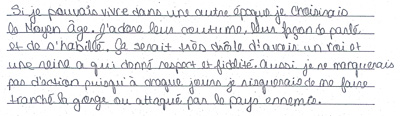 Si je pouvais vivre dans une autre époque je choisirais
le Moyen âge. J'adore leur coutume, leur façon de parlé
et de s'habillé. Ce serait très drôle d'avoir un roi et
une reine a qui donné respect et fidélité. Aussi je ne manquerais
pas d'action puisqu'à chaque jours je risquerais de me faire
tranché la gorge ou attaqué par le pays ennemie.